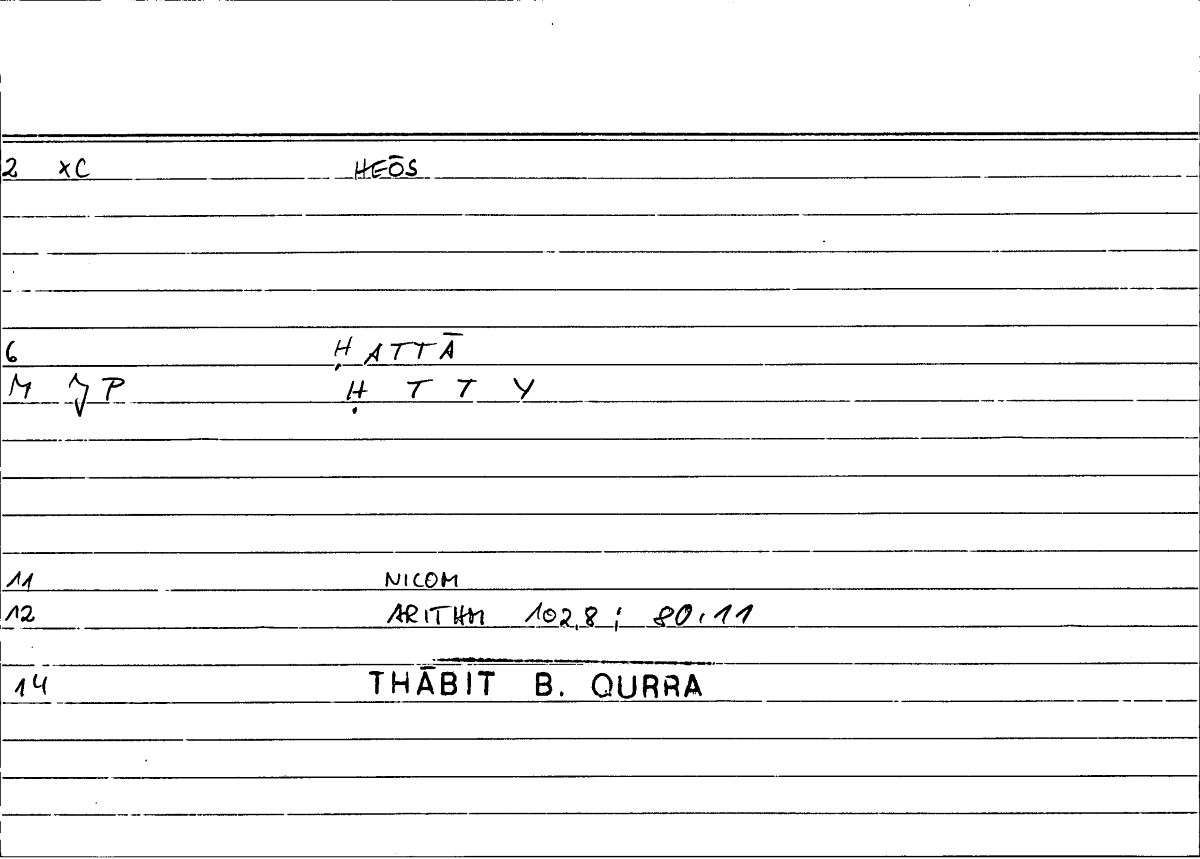 2 XC HEŌS
6 ḤATTĀ
M P Ḥ T T Y
11 NICOM
12 ARITHM 102,8; 80,11
14 THĀBIT B. QURRA